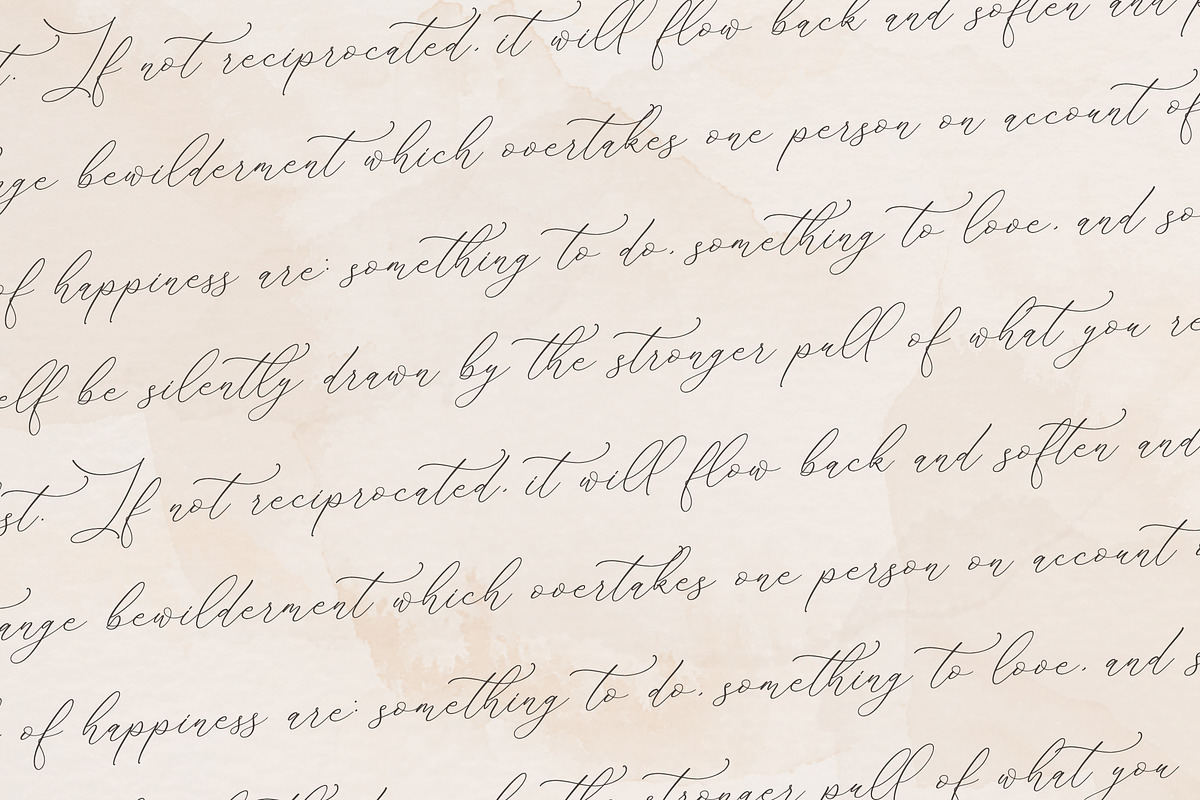 t. If not reciprocated, it will flow back and soften and p
nge bewilderment which overtakes one person on account of
of happiness are: something to do, something to love, and so
elf be silently drawn by the stronger pull of what you re
st. If not reciprocated, it will flow back and soften and
ange bewilderment which overtakes one person on account o
of happiness are: something to do, something to love, and s
stronger pull of what you